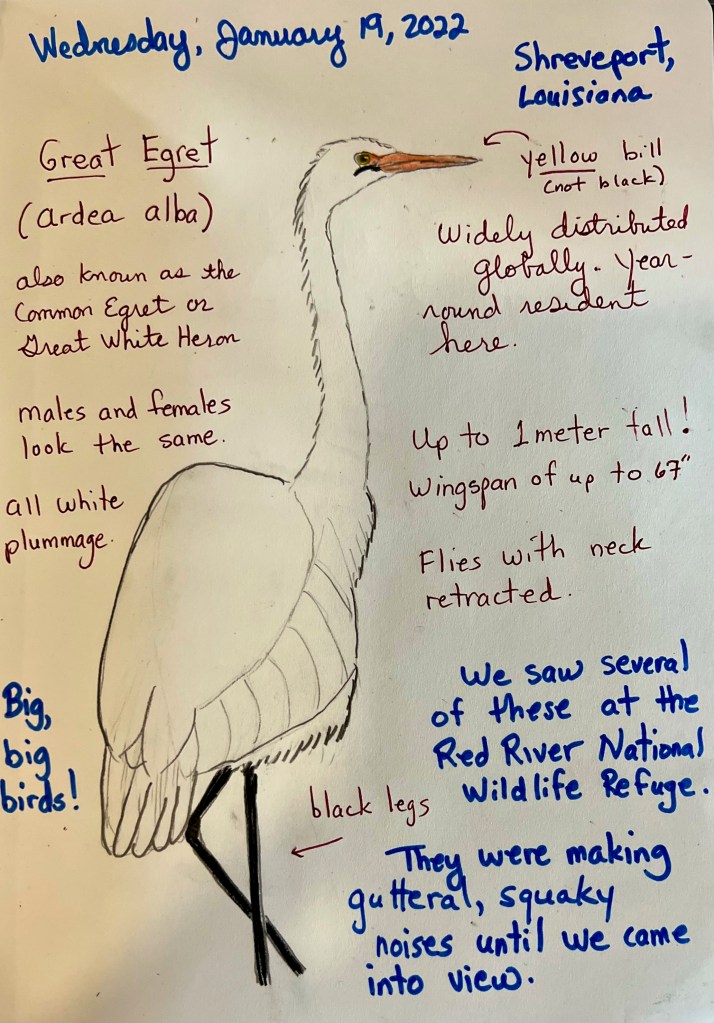 Wednesday, January 19, 2022
Shreveport,
Louisiana
Great Egret
(Ardea alba)
also known as the
Common Egret or
Great White Heron
males and females
look the same.
all white
plummage.
Big,
big
birds!
yellow bill
(not black)
Widely distributed
globally. Year-
round resident
here.
Up to 1 meter tall!
Wingspan of up to 67"
Flies with neck
retracted.
We saw several
of these at the
Red River National
Wildlife Refuge.
black legs
They were making
gutteral, squaky
noises until we came
into view.